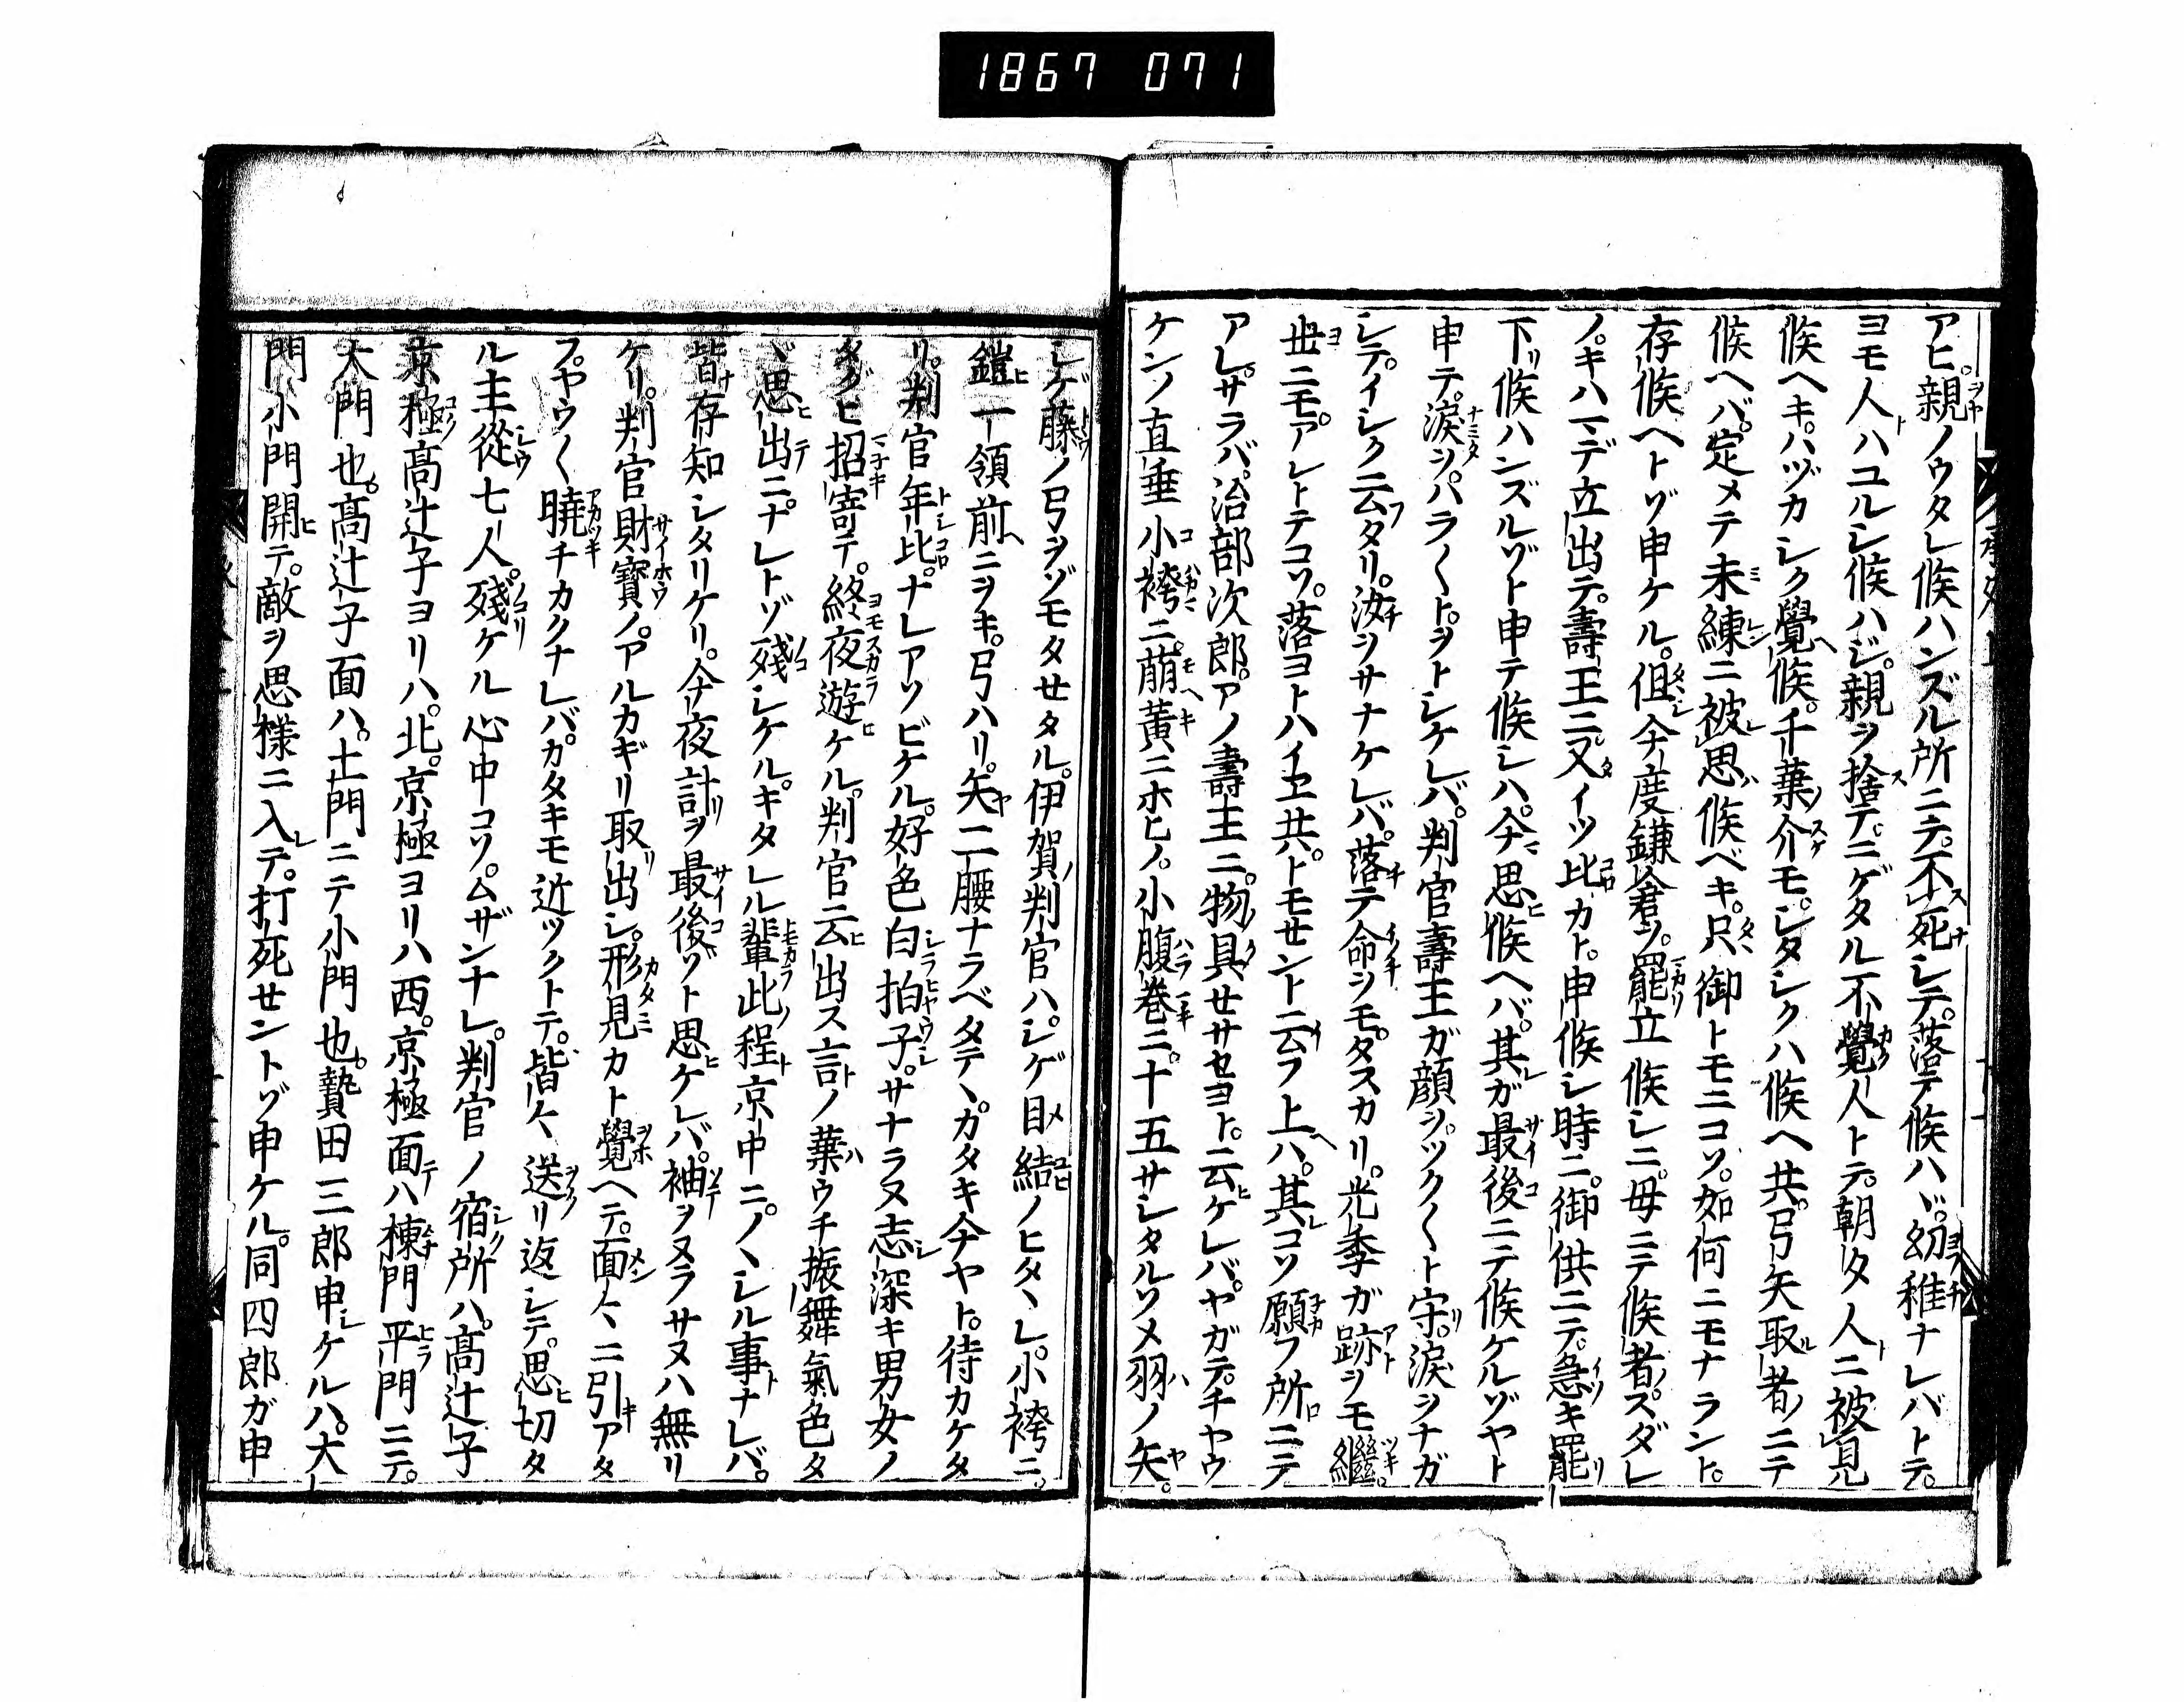 1867 071
アヒ。親ノウタレ候ハンズル所ニテ。不死シテ。落テ候ハヾ。幼稚ナレバトテ。
ヨモ人ハユルシ候ハジ。親ヲ捨テニゲタル不覺人トテ。朝夕人ニ被見
候ヘキ。ハヅカシク覺候。千葉介モ。シタシクハ候ヘ共。弓矢取者ニテ
候ヘバ。定メテ未練ニ被思候ベキ。只御トモニコソ。如何ニモナラント。
存候ヘトゾ申ケル。但今度鎌倉ヲ。罷立候シニ。母ニテ候者。スダレ
ノキハマデ立出テ。壽王ニ又イツ比カト。申候シ時ニ。御供ニテ。急キ罷
下リ候ハンズルゾト申テ候シハ。今思候ヘバ。其ガ最後ニテ候ケルゾヤト
申テ。涙ヲ。ハラ〱ト。ヲトシケレバ。判官壽王ガ顔ヲ。ツク〱ト守。涙ヲナガ
シテ。イシク云タリ。汝ヲサナケレバ。落テ命ヲモ。タスカリ。光季ガ跡ヲモ繼。
世ニモ。アレトテコソ。落ヨトハイヱ共。トモセント云フ上ハ。其コソ願フ所ニテ
アレ。サラバ。治部次郎。アノ壽王ニ。物具セサセヨト。云ケレバ。ヤガテ。チヤウ
ケンノ直垂小袴ニ。萠黄ニホヒノ。小腹巻ニ。十五サシタルソメ羽ノ矢。
シゲ藤ノ弓ヲゾモタせタル。伊賀判官ハ。シゲ目結ノヒタヽレ。小袴ニ。
鎧一領前ニヲキ。弓ハリ。矢二腰ナラベタテヽ。カタキ今ヤト。待カケタ
リ。判官年比。ナレアソビケル。好色白拍子。サナラヌ志深キ男女ノ
タグヒ招寄テ。終夜遊ケル。判官云出ス言ノ葉ウチ振舞氣色タ
ヾ思出ニ。ナレトゾ殘シケル。キタレル輩此程京中ニ。ノヽシル事ナレバ。
皆存知シタリケリ。今夜計ヲ最後ゾト思ケレバ。袖ヲヌラサヌハ無リ
ケリ。判官財寶ノ。アルカギリ取出シ。形見カト覺ヘテ。面〻ニ引アタ
フ。ヤウ〱曉チカクナレバ。カタキモ近ツクトテ。皆〻送リ返シテ。思切タ
ル主從七人。殘ケル心中コソ。ムザンナレ。判官ノ宿所ハ。髙辻子
京極髙辻子ヨリハ。北。京極ヨリハ西。京極面ハ棟門平門ニテ。
大門也。髙辻子面ハ。土門ニテ小門也。贄田三郎申ケルハ。大
門小門開テ。敵ヲ思様ニ入テ。打死せントゾ申ケル。同四郎ガ申